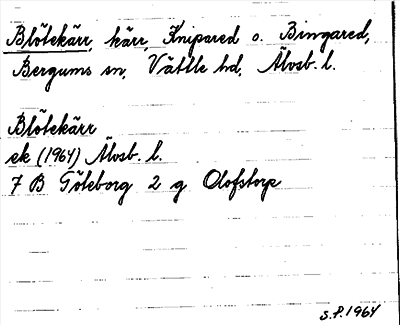 Blötekärr, kärr, Knipared o. Bingared,
Bergums sn, Vättle hd, Älvsb. l.
Blötekärr
ek (1964) Älvsb. l.
7 B Göteborg 2 g Olofstorp
S.P. 1964